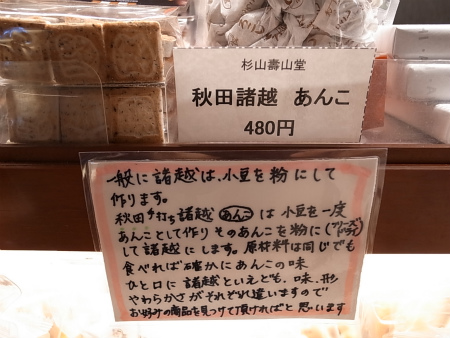 杉山壽山堂
秋田諸越 あんこ
480円
一般に諸越は、小豆を粉にして
作ります。
秋田手打ち諸越 あんこ は小豆を一度
あんことして作りそのあんこを粉に(フリーズドライ)
して諸越にします。原材料は同じでも
食べれば確かにあんこの味
ひと口に諸越といえども、味、形
やわらかさがそれぞれ違いますので
お好みの商品を見つけて頂ければと思います